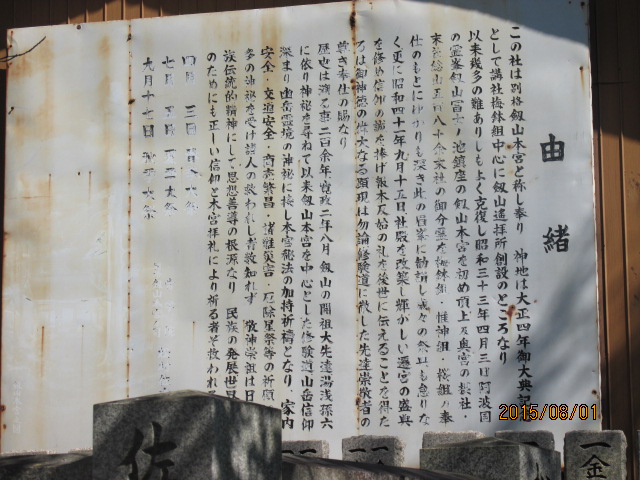 由緒
この社は別格釼山本宮と称し奉り 神地は大正四年御大典記念
として講社梅鉢組中心に釼山遥拝所創設のところなり
以来幾多の難ありしもよく克復し昭和三十三年四月三日阿波国
の霊峯釼山冨士ノ池鎮座の釼山本宮を初め頂上及奥宮の摂社
末社総山五百八十余末社の御分霊を梅鉢組 桜組 奉
仕のもとに 此の霊峯に勧請し 々の祭典も怠りな
く更に昭和四十一年九月十五日社殿を改築し輝かしい遷宮の盛典
を修め信仰の誠を捧げ報本反始の礼を後世に伝えることを得た
るは御神徳の偉大なる顕現は勿論修験道に徹した先達崇敬者の
尊き奉仕の賜なり
歴史は溯る事二百余年寛政二年八月 釼山の開祖大先達湯浅孫六
に依り神秘を尋ねて以来釼山本宮を中心とした修験道山岳信仰
深まり山岳霊境の神秘に接し本宮秘法の加持祈祷となり、家内
安全・交通安全・商売繁昌・諸難災害・厄除星祭等の祈願
多の神秘を受け諸人の救われし者数知れず 敬神崇祖は日
族伝統的精神にして思想善導の根源なり 民族の発展世界
のためにも正しい信仰と本宮拝礼により祈る者ぞ救われる
四月 三日 祭
七月 五日 祭
九月十七日 祭
佐
一金
一
一
一
2015/08/01